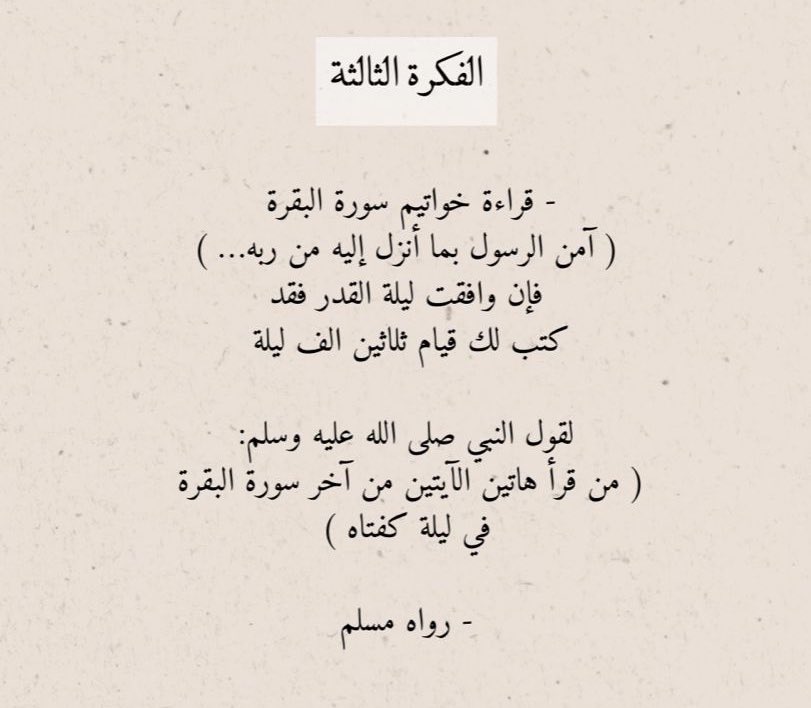 الفكرة الثالثة
- قراءة خواتيم سورة البقرة
( آمن الرسول بما أنزل إليه من ربه... )
فإن وافقت ليلة القدر فقد
كتب لك قيام ثلاثين الف ليلة
لقول النبي صلى الله عليه وسلم:
( من قرأ هاتين الآيتين من آخر سورة البقرة
في ليلة كفتاه )
- رواه مسلم